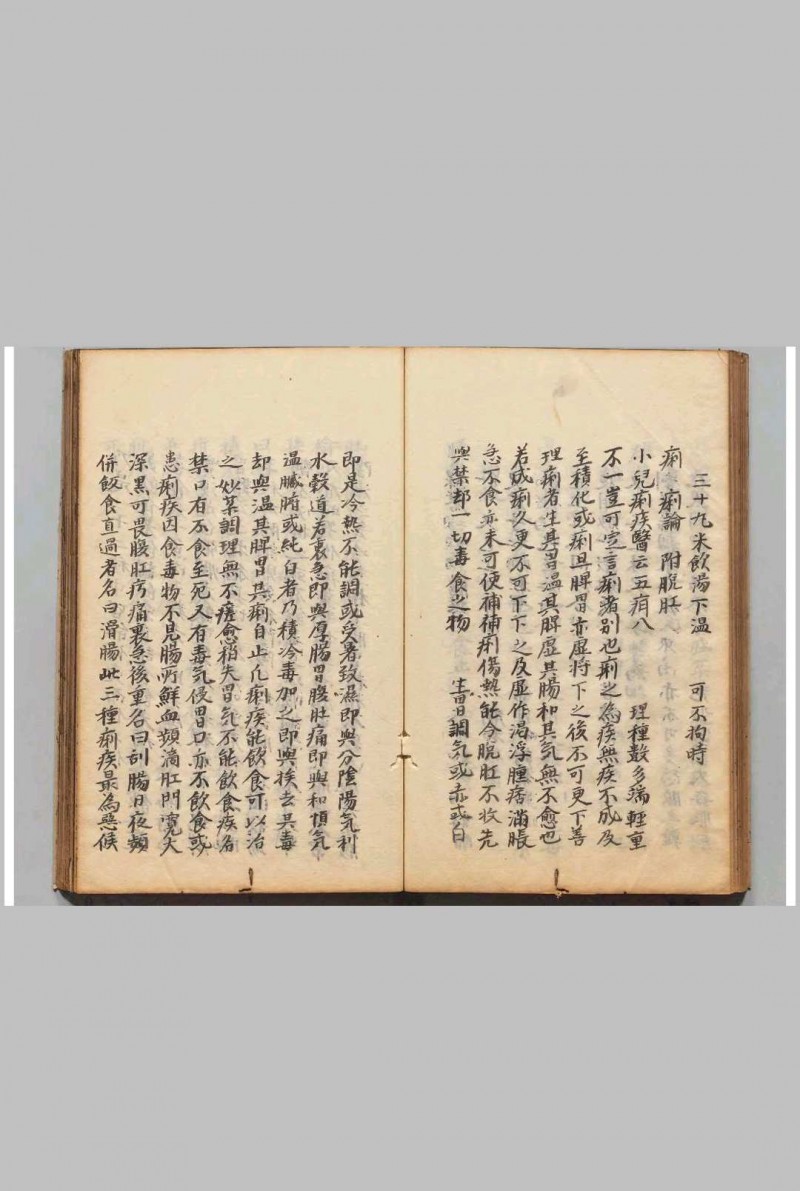 三十九米飲湯下温　可不拘時
痢　痢論　附脫肛
小兒痢疾醫云五疳八　理種數多端輕重
不一豈可定言痢者别也痢之為疾無疾不成及
至積化或痢且脾胃亦虛将下之後不可更下善
理痢者生其胃温其脾虛其腸和其気無不愈也
若成痢久更不可下下之及虛作渴浮腫痞滿脹
急不食亦未可便補補痢傷熱能令脫肛不收先
與禁却一切毒食之物　調気或赤或白
即是冷熱不能調或受暑致濕即與分陰陽気利
水穀道若裏急即與厚腸胃腹肚痛即與和順気
温臟腑或純白者乃積冷毒加之即與挨去其毒
却與温其脾胃其痢自止凢痢疾能飲食可以治
之妙薬調理無不痊愈稍失胃気不能飲食疾名
禁口有不食至死又有毒気侵胃口亦不飲食或
患痢疾因食毒物不見腸所鮮血頻滴肛門寛大
深黑可畏腹肛㽲痛裏急後重名曰刮腸日夜頻
併飯食直過者名曰滑腸此三種痢疾最為惡候